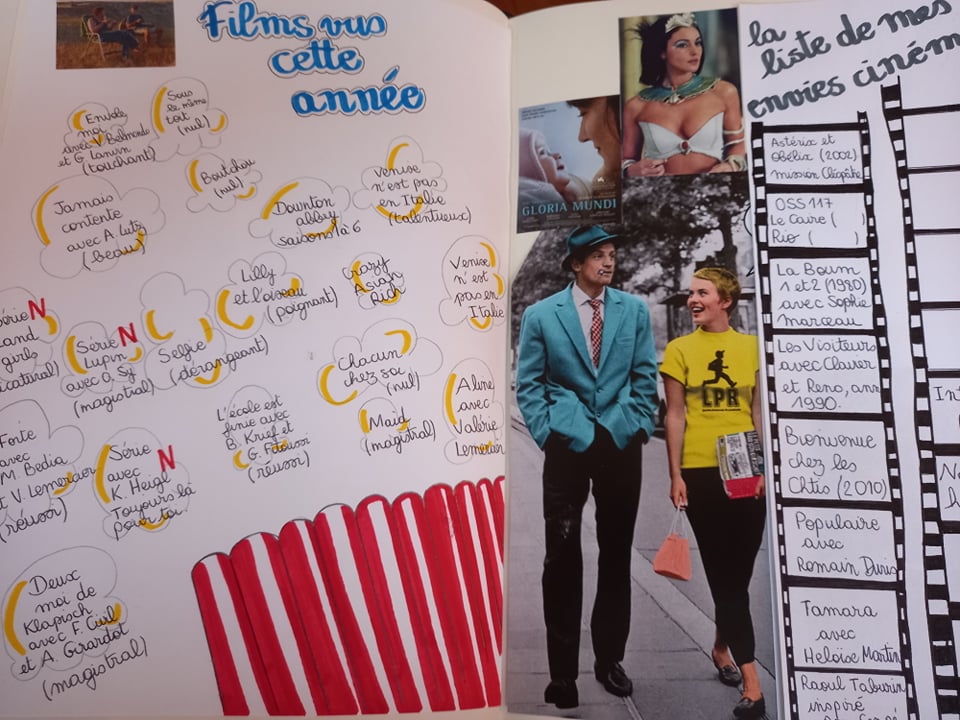 Films vus
cette
année
Envole
moi
avec V Belmondo
et G. Lanvin
(touchant)
Sous
le même
toit
(nul)
Boutchou
(nul)
Jamais
contente
avec A. Lutz
(beau)
Downton
abbey
saisons 1 à 6
Venise
n'est pas
en Italie
(talentueux)
Série N
and
girls
Série N
Lupin
avec O. Sy
(magistral)
Selfie
(dérangeant)
Lilly
et l'oiseau
(poignant)
Crazy
Asian
Rich
Venise
n'est
pas en
Italie
Chacun
chez soi
(nul)
Maid
(magistral)
Aline
avec
Valérie
Lemercier
L'école est
finie avec
B. Krief et
G.
(réussi)
avec
M. Bedia
V. Lemercier
(réussi)
Série
avec N
K. Heigl
Toujours là
pour toi
Deux
moi de
Klapisch
avec F. Civil
et A. Girardot
(magistral)
GLORIA MUNDI
LPR
la
liste de mes
envies ciném
Astérix et
Obélix (2002)
mission Cléopâtre
OSS 117
Le Caire ( )
Rio ( )
La Boum
1 et 2 (1980)
avec Sophie
Marceau
Les Visiteurs
avec Clavier
et Reno, ann
1990.
Bienvenue
chez les
Chtis (2010)
Populaire
avec
Romain Duris
Tamara
avec
Heloïse Martin
Raoul Taburin
inspiré